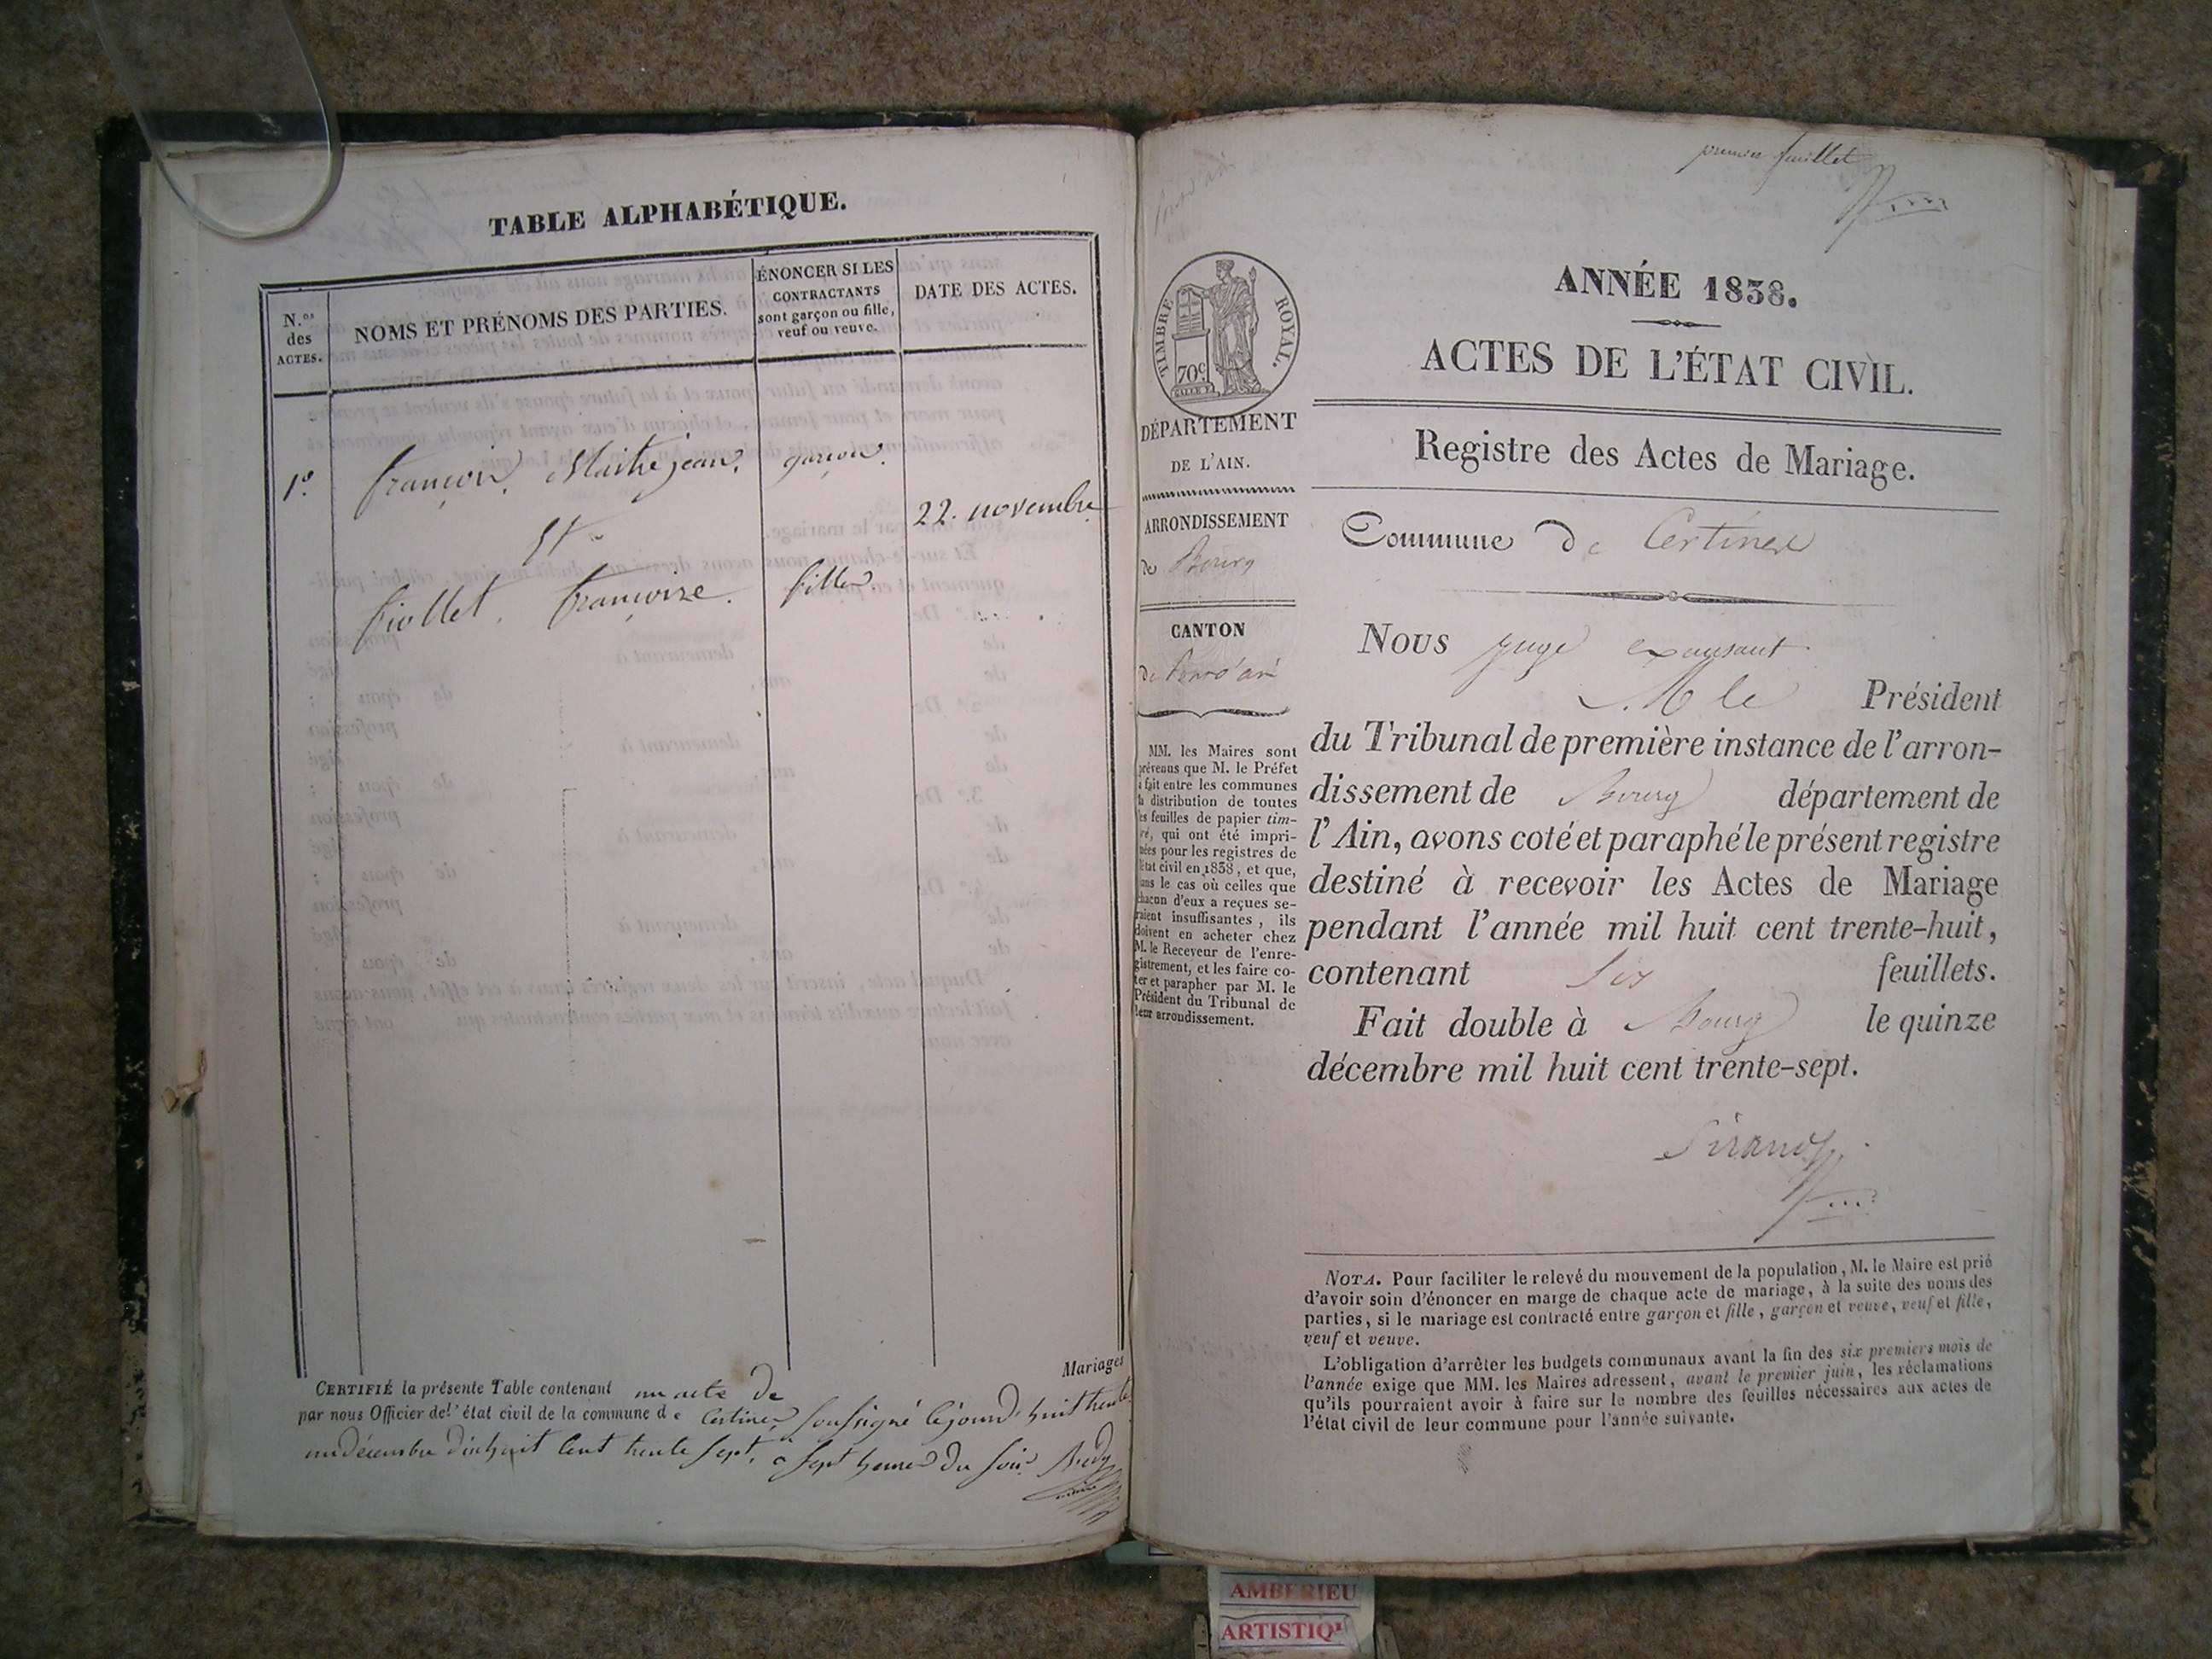 TABLE ALPHABÉTIQUE.
N.os
des
ACTES.
NOMS ET PRÉNOMS DES PARTIES.
ÉNONCER SI LES
CONTRACTANTS
sont garçon ou fille,
veuf ou veuve.
DATE DES ACTES.
1°. françois Maitrejean. garçon.
22. novembre
Et
fiollet. françoise. fille.
Mariages
CERTIFIÉ la présente Table contenant un acte De
par nous Officier de l'état civil de la commune de Certines soussigné cejourd'huit trente
un décembre dixhuit cent trente sept. a sept heures du soir.
premier feuillet
TIMBRE ROYAL.
70c
ANNÉE 1838.
ACTES DE L'ÉTAT CIVIL.
Registre des Actes de Mariage.
Commune de Certines
DÉPARTEMENT
DE L'AIN.
ARRONDISSEMENT
de Bourg
CANTON
de Pont d'ain
MM. les Maires sont
prévenus que M. le Préfet
a fait entre les communes
la distribution de toutes
les feuilles de papier tim-
bré, qui ont été impri-
mées pour les registres de
l'état civil en 1838, et que,
dans le cas où celles que
chacun d'eux a reçues se-
raient insuffisantes, ils
doivent en acheter chez
M. le Receveur de l'enre-
gistrement, et les faire co-
ter et parapher par M. le
Président du Tribunal de
leur arrondissement.
Nous juge exerçant
M le Président
du Tribunal de première instance de l'arron-
dissement de Bourg département de
l'Ain, avons coté et paraphé le présent registre
destiné à recevoir les Actes de Mariage
pendant l'année mil huit cent trente-huit,
contenant six feuillets.
Fait double à Bourg le quinze
décembre mil huit cent trente-sept.
Sirand
NOTA. Pour faciliter le relevé du mouvement de la population, M. le Maire est prié
d'avoir soin d'énoncer en marge de chaque acte de mariage, à la suite des noms des
parties, si le mariage est contracté entre garçon et fille, garçon et veuve, veuf et fille,
veuf et veuve.
L'obligation d'arrêter les budgets communaux avant la fin des six premiers mois de
l'année exige que MM. les Maires adressent, avant le premier juin, les réclamations
qu'ils pourraient avoir à faire sur le nombre des feuilles nécessaires aux actes de
l'état civil de leur commune pour l'année suivante.
AMBERIEU
ARTISTIQ